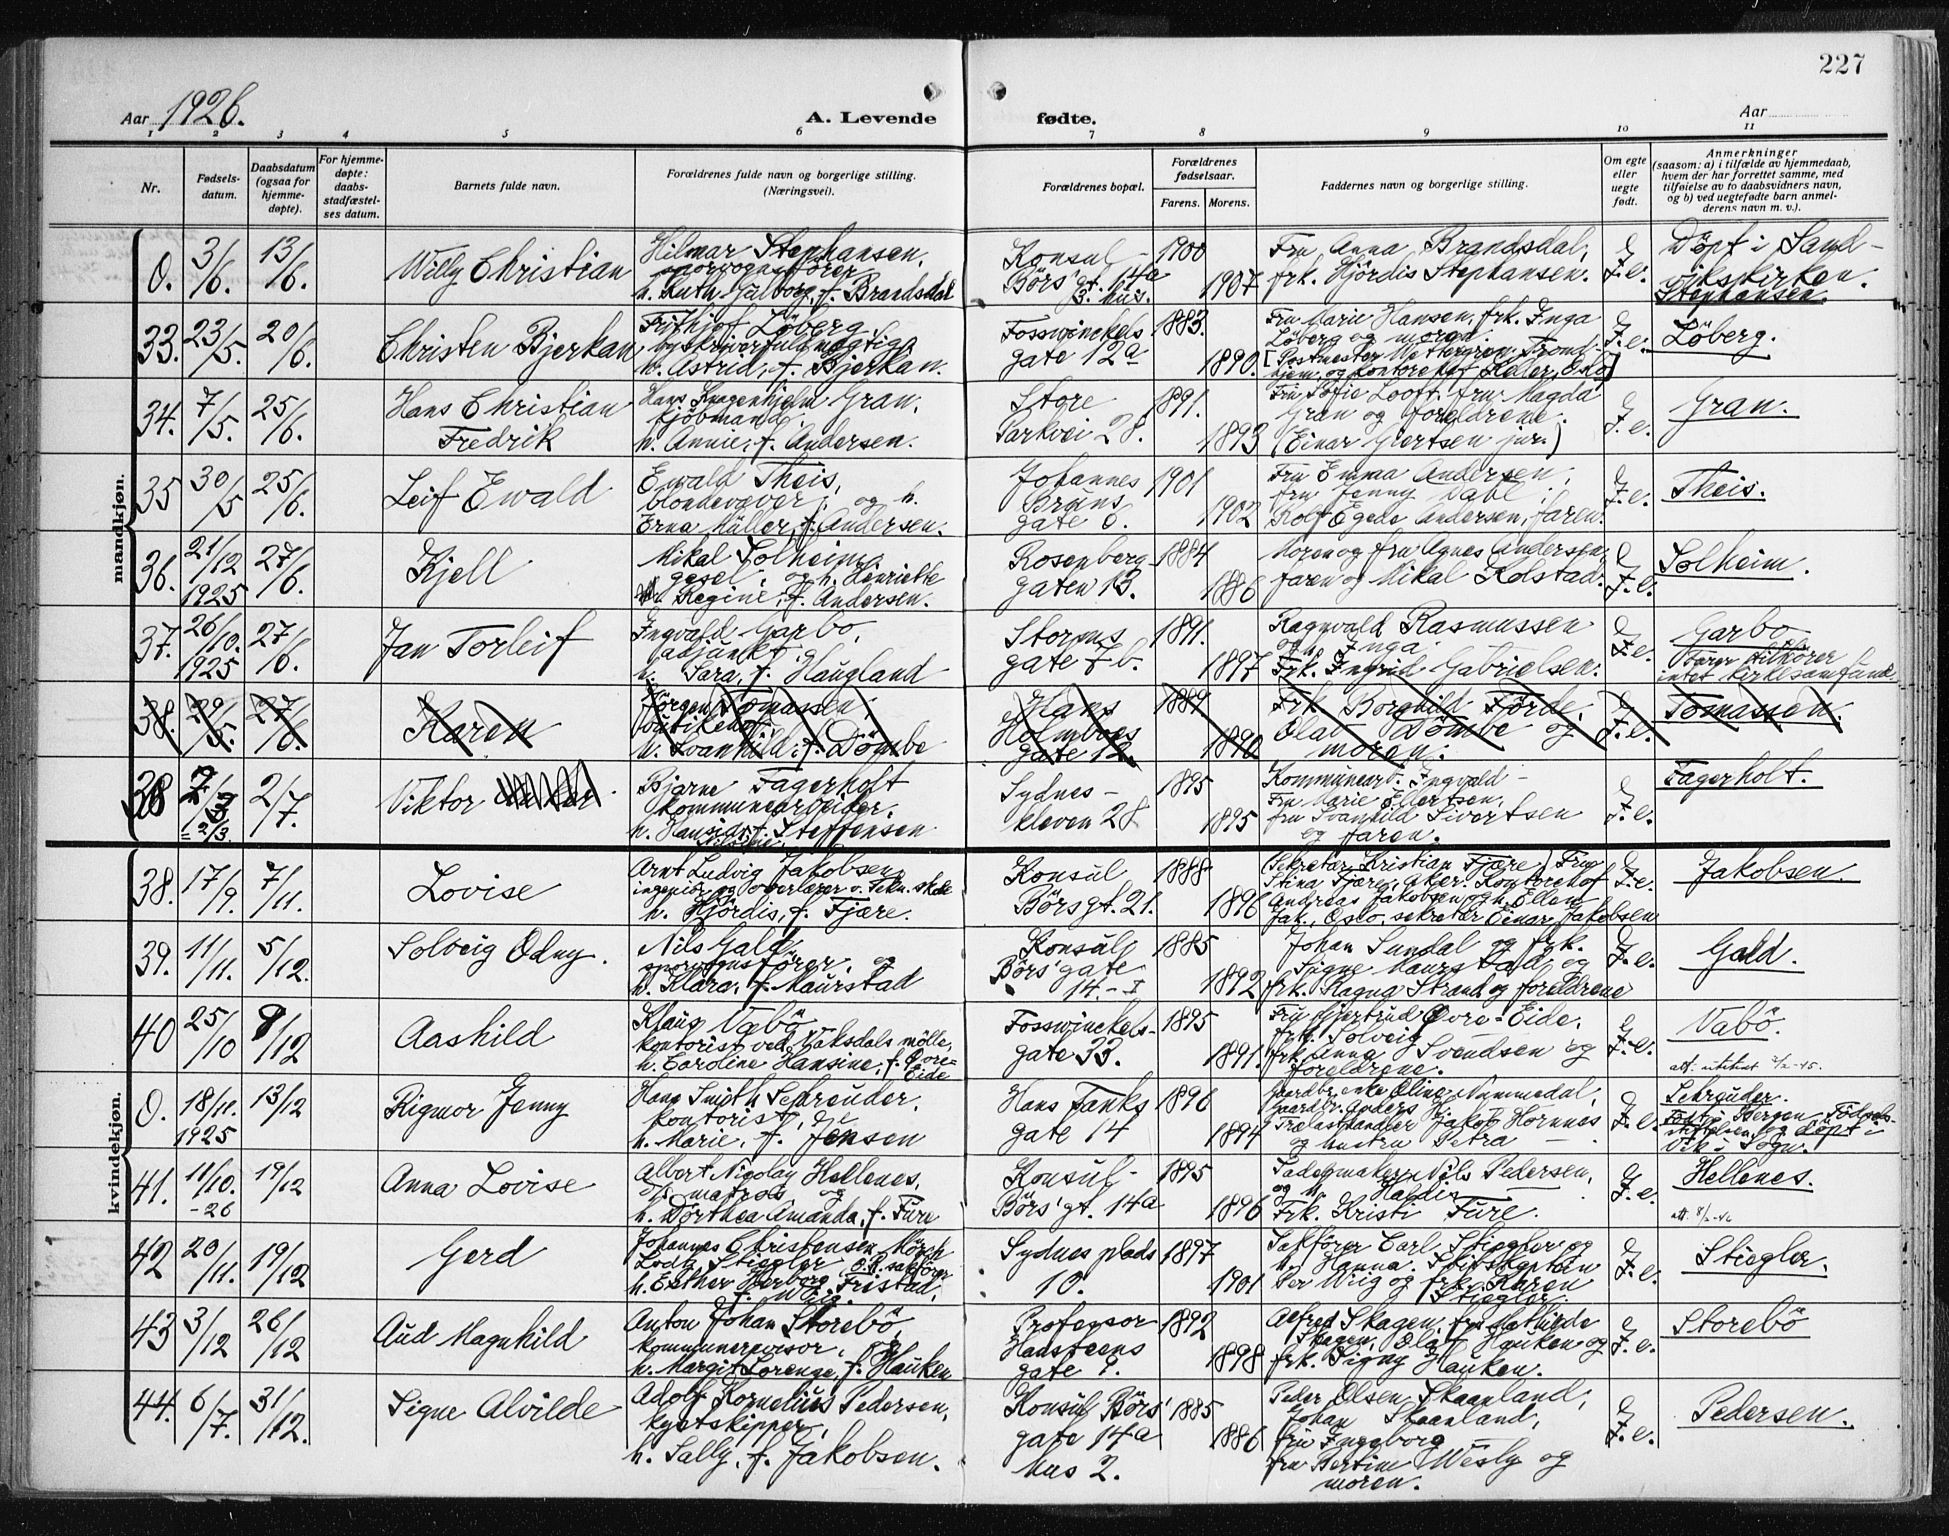 227
Aar 1926.
A. Levende fødte.
Aar
1 2 3 4 5 6 7 8 9 10 11
Nr.
Fødsels-
datum.
Daabsdatum
(ogsaa for
hjemme-
døpte).
For hjemme-
døpte:
daabs-
stadfæstel-
ses datum.
Barnets fulde navn.
Forældrenes fulde navn og borgerlige stilling.
(Næringsvei).
Forældrenes bopæl.
Forældrenes
fødselsaar.
Farens. Morens.
Faddernes navn og borgerlige stilling.
Om egte
eller
uegte
født.
Anmerkninger
(saasom: a) i tilfælde av hjemmedaab,
hvem der har forrettet samme, med
tilføielse av to daabsvidners navn,
og b) ved uegtefødte barn anmel-
derens navn m. v.).
mandkjøn.
0. 3/6. 13/6. Willy Christian
Hilmar Stephansen,
sporvognsfører
h. Ruth Gulborg, f. Brandsdal
Konsul
Börs' gt. 14a
3. hus.
1900 1907
Fru Anna Brandsdal,
frk. Hjördis Stephansen.
F. e.
Döpt i Sand-
vikskirken.
Stephansen.
33. 23/5. 20/6. Christen Bjerkan
Frithjof Löberg,
byskriverfuldmægtig
h. Astrid, f. Bjerkan.
Fosswinckels
gate 12a
1883. 1890.
Fru Marie Hansen, frk. Inga
Löberg og moren.
[Postmester Wettergren, Trond-
hjem og kontorchef Oslo]
F. e.
Löberg.
34. 7/5. 25/6. Hans Christian
Fredrik
Hans Gran,
kjöbmand,
h. Annie, f. Andersen.
Store
Parkvei 28.
1891. 1893
Fru Sofie Looft, fru Magda
Gran og foreldrene.
(Einar Giertsen jun.)
F. e.
Gran.
35 30/5 25/6. Leif Ewald
Ewald Theis,
blondevæver, og h.
Erna Müller, f. Andersen.
Johannes
Bruns
gate 6.
1901 1902
Fru Emma Andersen,
fru Jenny Dahl,
Rolf Egede Andersen, faren.
F. e.
Theis.
36. 21/12 1925 27/6. Kjell
Mikal Solheim,
og h. Henriette
Regine, f. Andersen.
Rosenberg
gaten 13.
1884 1886
Moren og fru Agnes Andersen,
faren og Mikal Kolstad.
F. e.
Solheim.
37. 26/10. 1925 27/6. Jan Torleif
Ingvald Garbo,
adjunkt,
h. Sara, f. Haugland
Storms
gate 7b.
1891. 1897
Ragnvald Rasmussen
og h. Inga.
Frk. Ingrid Gabrielsen.
F. e.
Garbo
Faren tilhörer
intet kirkesamfund.
38. 29/5. 27/6. Karen
Jörgen Tomassen,
h. Svanhild, f. Dömbe
Hans
Holmboes
gate 12.
1889. 1890
Frk. Borghild Förde,
Olav Dömbe og
moren.
F. e.
Tomassen.
38 2/3. 2/7. Viktor
Bjarne Fagerholt
kommunearbeider.
h. f. Steffensen
Sydnes-
kleven 28
1895 1895
Kommunearb. Ingvald
Fru Marie Ellertsen,
fru Svanhild Sivertsen
og faren.
F. e.
Fagerholt.
kvindekjøn.
38. 17/9. 7/11. Lovise
Arnt Ludvig Jakobsen,
ingeniör og overlærer v. Tekn. skole
h. Hjördis, f. Fjære.
Konsul
Börs gt. 21.
1888 1896
(Sekretær Kristian Fjære) Fru
Stina Fjære, Aker. Kontorchef
Andreas Jakobsen og h. Ellen
Jak., Oslo, sekretær Einar Jakobsen
F. e.
Jakobsen.
39. 11/11. 5/12. Solveig Odny.
Nils Gald,
sporvognsförer, og
h. Klara, f. Maurstad
Konsul
Börs' gate
14. - I
1885 1892
Johan Sundal og frk.
Signe Maurstad, og
frk. Ragna Strand og foreldrene
F. e.
Gald.
40 25/10 8/12 Aashild
Klaus Vabö
kontorist ved Vaksdals mölle,
h. Caroline Hansine, f. Övre-
Eide
Fosswinckels-
gate 33.
1895 1891.
Fru Gjertrud Övre-Eide,
frk. Solveig
frk. Anna Svendsen og
foreldrene.
F. e.
Vabö.
att. utstedt 2/2-45.
0. 18/11. 1925 13/12 Rigmor Jenny
Hans Smith Schreuder,
kontorist, og
h. Marie, f. Jensen
Hans Tanks
gate 14
1896 1894
Gaardbr. enke Oline Nummedal,
Gaardbr. Anders
Trælasthandler Jakob Hornnes
og hustru Petra
F. e.
Schreuder.
Födt i Bergen Födsels-
stiftelsen og döpt i
Vik i Sogn.
41. 11/10. -26 19/12 Anna Lovise
Albert Nicolay Hellenes,
matros, og
h. Dorthea Amanda, f. Fure
Konsul-
Börs' gt. 14a
1895 1896
Nils Pedersen,
og h. Haldis
Frk. Kristi Fure.
F. e.
Hellenes.
att. 8/2-46
42 20/11. 19/12 Gerd
Johannes Christensen Mörch
Lodtz Stiegler, O.R. sakförer
h. Esther Herborg Fristad,
f. Wiig.
Sydnes plads
10.
1897 1901
Sakförer Carl Stiegler og
h. Hanna. Skibskaptein
Per Wiig og frk. Karen
Stiegler.
F. e.
Stiegler.
43 3/12 26/12 Aud Magnhild
Anton Johan Storebö,
kommunerevisor, og
h. Margit Lorense, f. Hauken
Professor
Hansteens
gate 9.
1892 1898
Alfred Skagen, fru Mathilde
Skagen, Olaf Hauken og
frk. Signy Hauken.
F. e.
Storebö
44. 6/7. 31/12. Signe Alvilde
Adolf Kornelius Pedersen,
kystskipper,
h. Sally, f. Jakobsen.
Konsul Börs'
gate 14a
hus 2.
1885 1886
Peder Olsen Skaanland,
Johan Skaanland,
fru Ingeborg
fru Bertine Wesly og
moren.
F. e.
Pedersen.